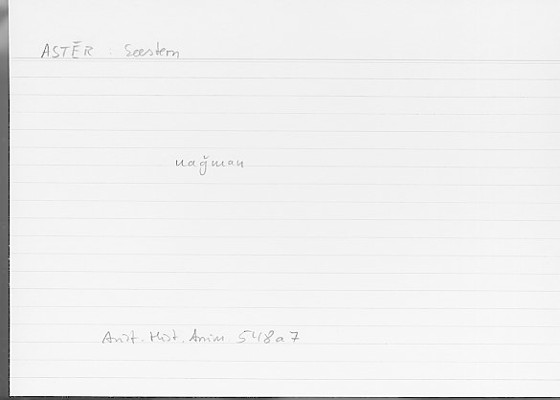 ASTĒR : Seestern
naǧman
Arist. Hist. Anim. 548a7